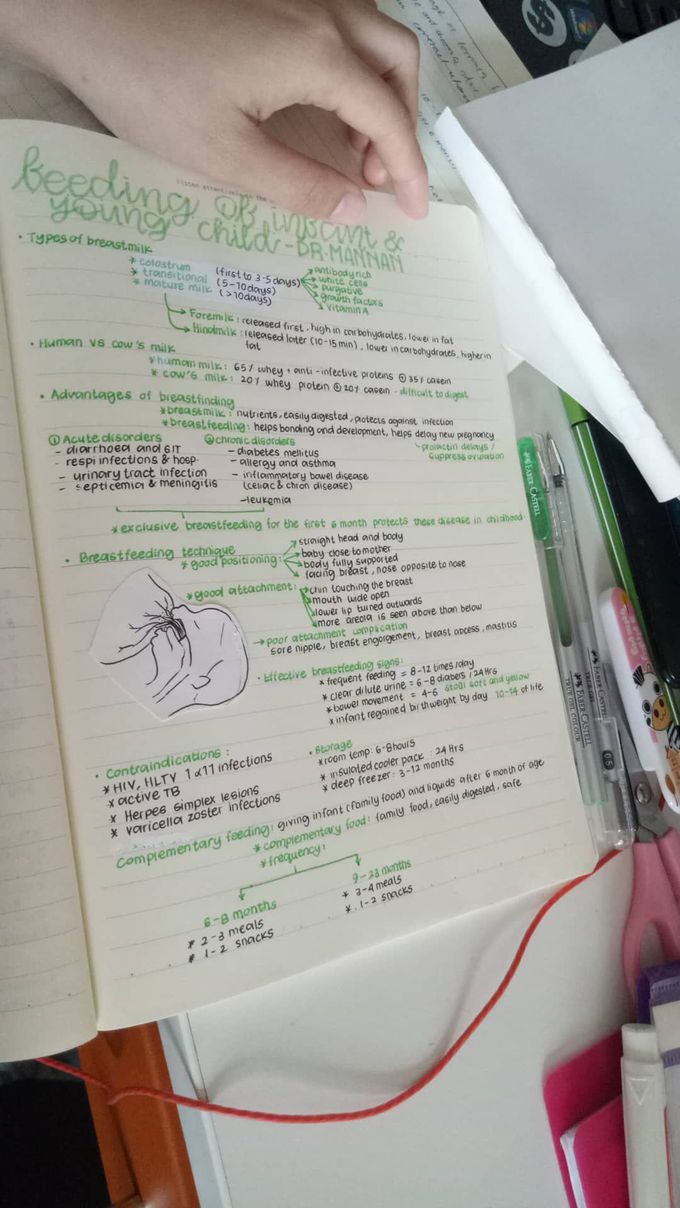 feeding of infant &
young child - DR. MANNAN
• Types of breastmilk
* colostrum (first to 3-5 days)
* transitional (5-10 days)
* mature milk (>10 days)
antibody rich
white cells
purgative
growth factors
vitamin A
Foremilk : released first, high in carbohydrates, lower in fat
Hindmilk : released later (10-15 min), lower in carbohydrates, higher in
fat
• Human vs cow's milk
* human milk : 65% whey + anti-infective proteins ⊕ 35% casein
* cow's milk : 20% whey protein ⊕ 20% casein - difficult to digest
• Advantages of breastfinding
* breastmilk : nutrients, easily digested, protects against infection
* breastfeeding : helps bonding and development, helps delay new pregnancy
prolactin delays /
suppress ovulation
① Acute disorders
- diarrhoea and GIT
- respi infections & hosp.
- urinary tract infection
- septicemia & meningitis
② chronic disorders
- diabetes mellitus
- allergy and asthma
- inflammatory bowel disease
(celiac & chron disease)
- leukemia
* exclusive breastfeeding for the first 6 month protects these disease in childhood.
• Breastfeeding technique
* good positioning :
straight head and body
baby close to mother
body fully supported
facing breast, nose opposite to nose
* good attachment :
chin touching the breast
mouth wide open
lower lip turned outwards
more areola is seen above than below
→ poor attachment complication
sore nipple, breast engorgement, breast abcess, mastitis
• Effective breastfeeding signs :
* frequent feeding = 8-12 times/day
* clear dilute urine = 6-8 diabers / 24 Hrs
* bowel movement = 4-6 stool soft and yellow
* infant regained birthweight by day 10-14 of life
• Contraindications :
* HIV, HLTV 1 & 11 infections
* active TB
* Herpes simplex lesions
* varicella zoster infections
• Storage
* room temp : 6-8 hours
* insulated cooler pack : 24 Hrs
* deep freezer : 3-12 months
Complementary feeding : giving infant (family food) and liquids after 6 month of age
* complementary food : family food, easily digested, safe
* frequency :
6-8 months
* 2-3 meals
* 1-2 snacks
9-23 months
* 3-4 meals
* 1-2 snacks
FABER CASTELL
FABER-CASTELL
TRUE GEL COLOURS
0.5